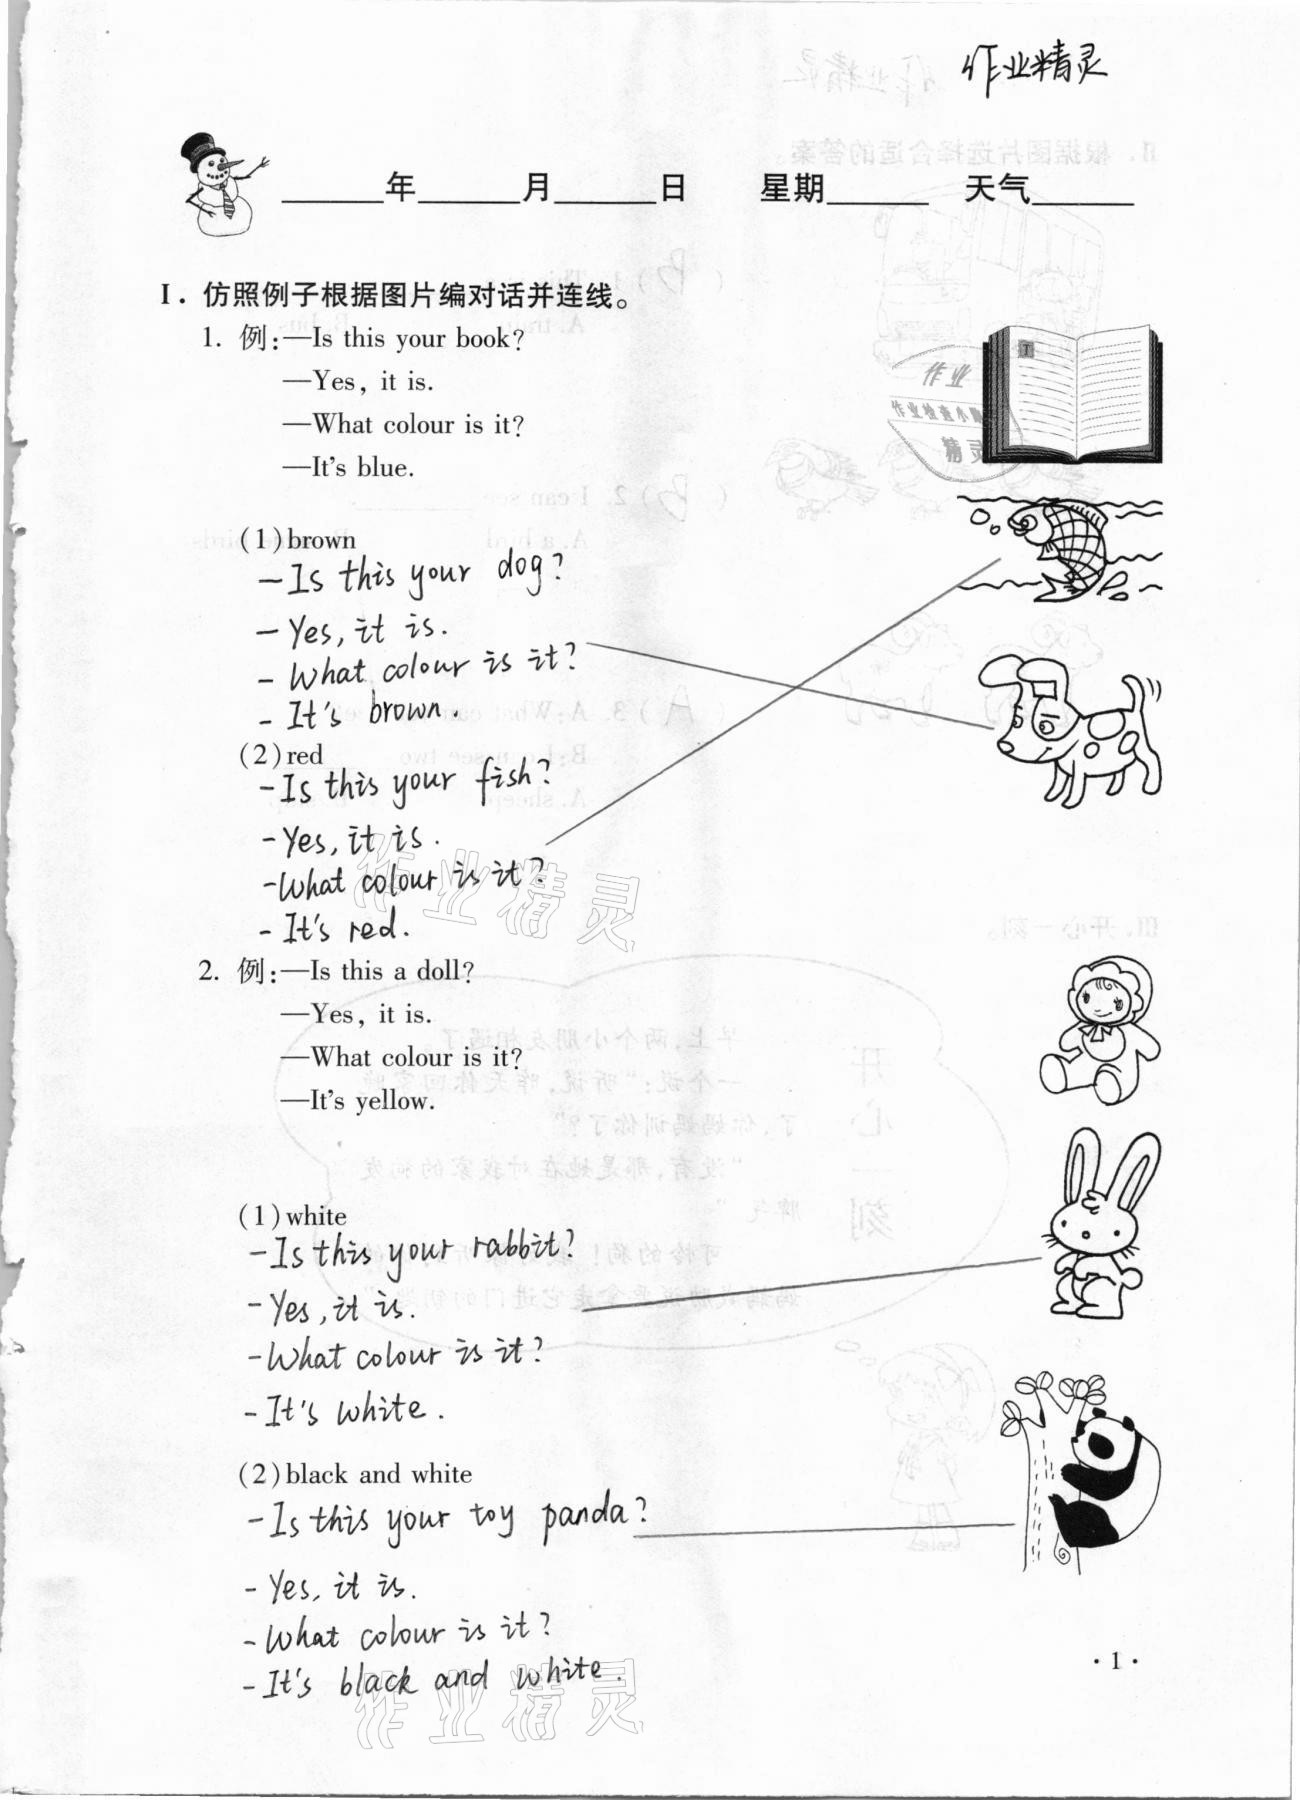 作业精灵
____年____月____日 星期____ 天气____
Ⅰ. 仿照例子根据图片编对话并连线。
1. 例:—Is this your book?
—Yes, it is.
—What colour is it?
—It's blue.
作业
作业检查小
精灵
(1)brown
—Is this your dog?
—Yes, it is.
—What colour is it?
—It's brown.
(2)red
—Is this your fish?
—Yes, it is.
—What colour is it?
—It's red.
作业精灵
2. 例:—Is this a doll?
—Yes, it is.
—What colour is it?
—It's yellow.
(1)white
—Is this your rabbit?
—Yes, it is.
—What colour is it?
—It's white.
(2)black and white
—Is this your toy panda?
—Yes, it is.
—What colour is it?
—It's black and white.
作业精灵
·1·